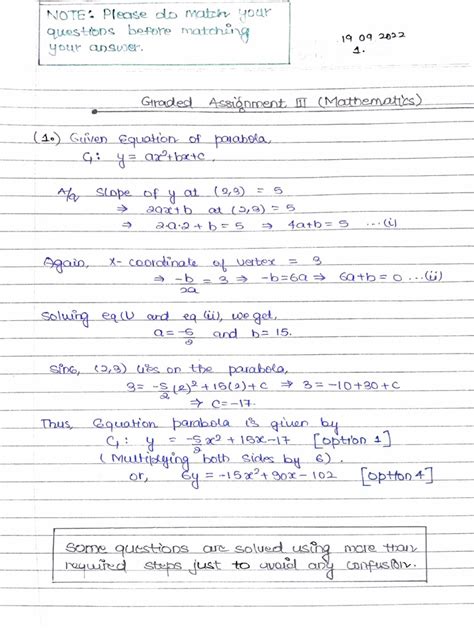 NOTE: Please do match your
questions before matching
your answer.
19 09 2022
1.
Graded Assignment III (Mathematics)
(1.) Given Equation of parabola,
C₁: y = ax²+bx+c.
A/q slope of y at (2,3) = 5
⇒ 2ax+b at (2,3) = 5
⇒ 2·a·2 + b = 5 ⇒ 4a+b = 5 ...(i)
Again, x-coordinate of vertex = 3
⇒ -b/2a = 3 ⇒ -b=6a ⇒ 6a+b = 0 ...(ii)
Solving eq(i) and eq (ii), we get,
a = -5/2 and b = 15.
Sinc, (2,3) lies on the parabola,
3 = -5/2 (2)² + 15(2) + c ⇒ 3 = -10+30+c
⇒ c = -17.
Thus, Equation parabola is given by
C₁: y = -5/2 x² + 15x-17 [option 1]
(Multiplying both sides by 6).
or, 6y = -15x²+90x-102 [option 4]
Some questions are solved using more than
required steps just to avoid any confusion.